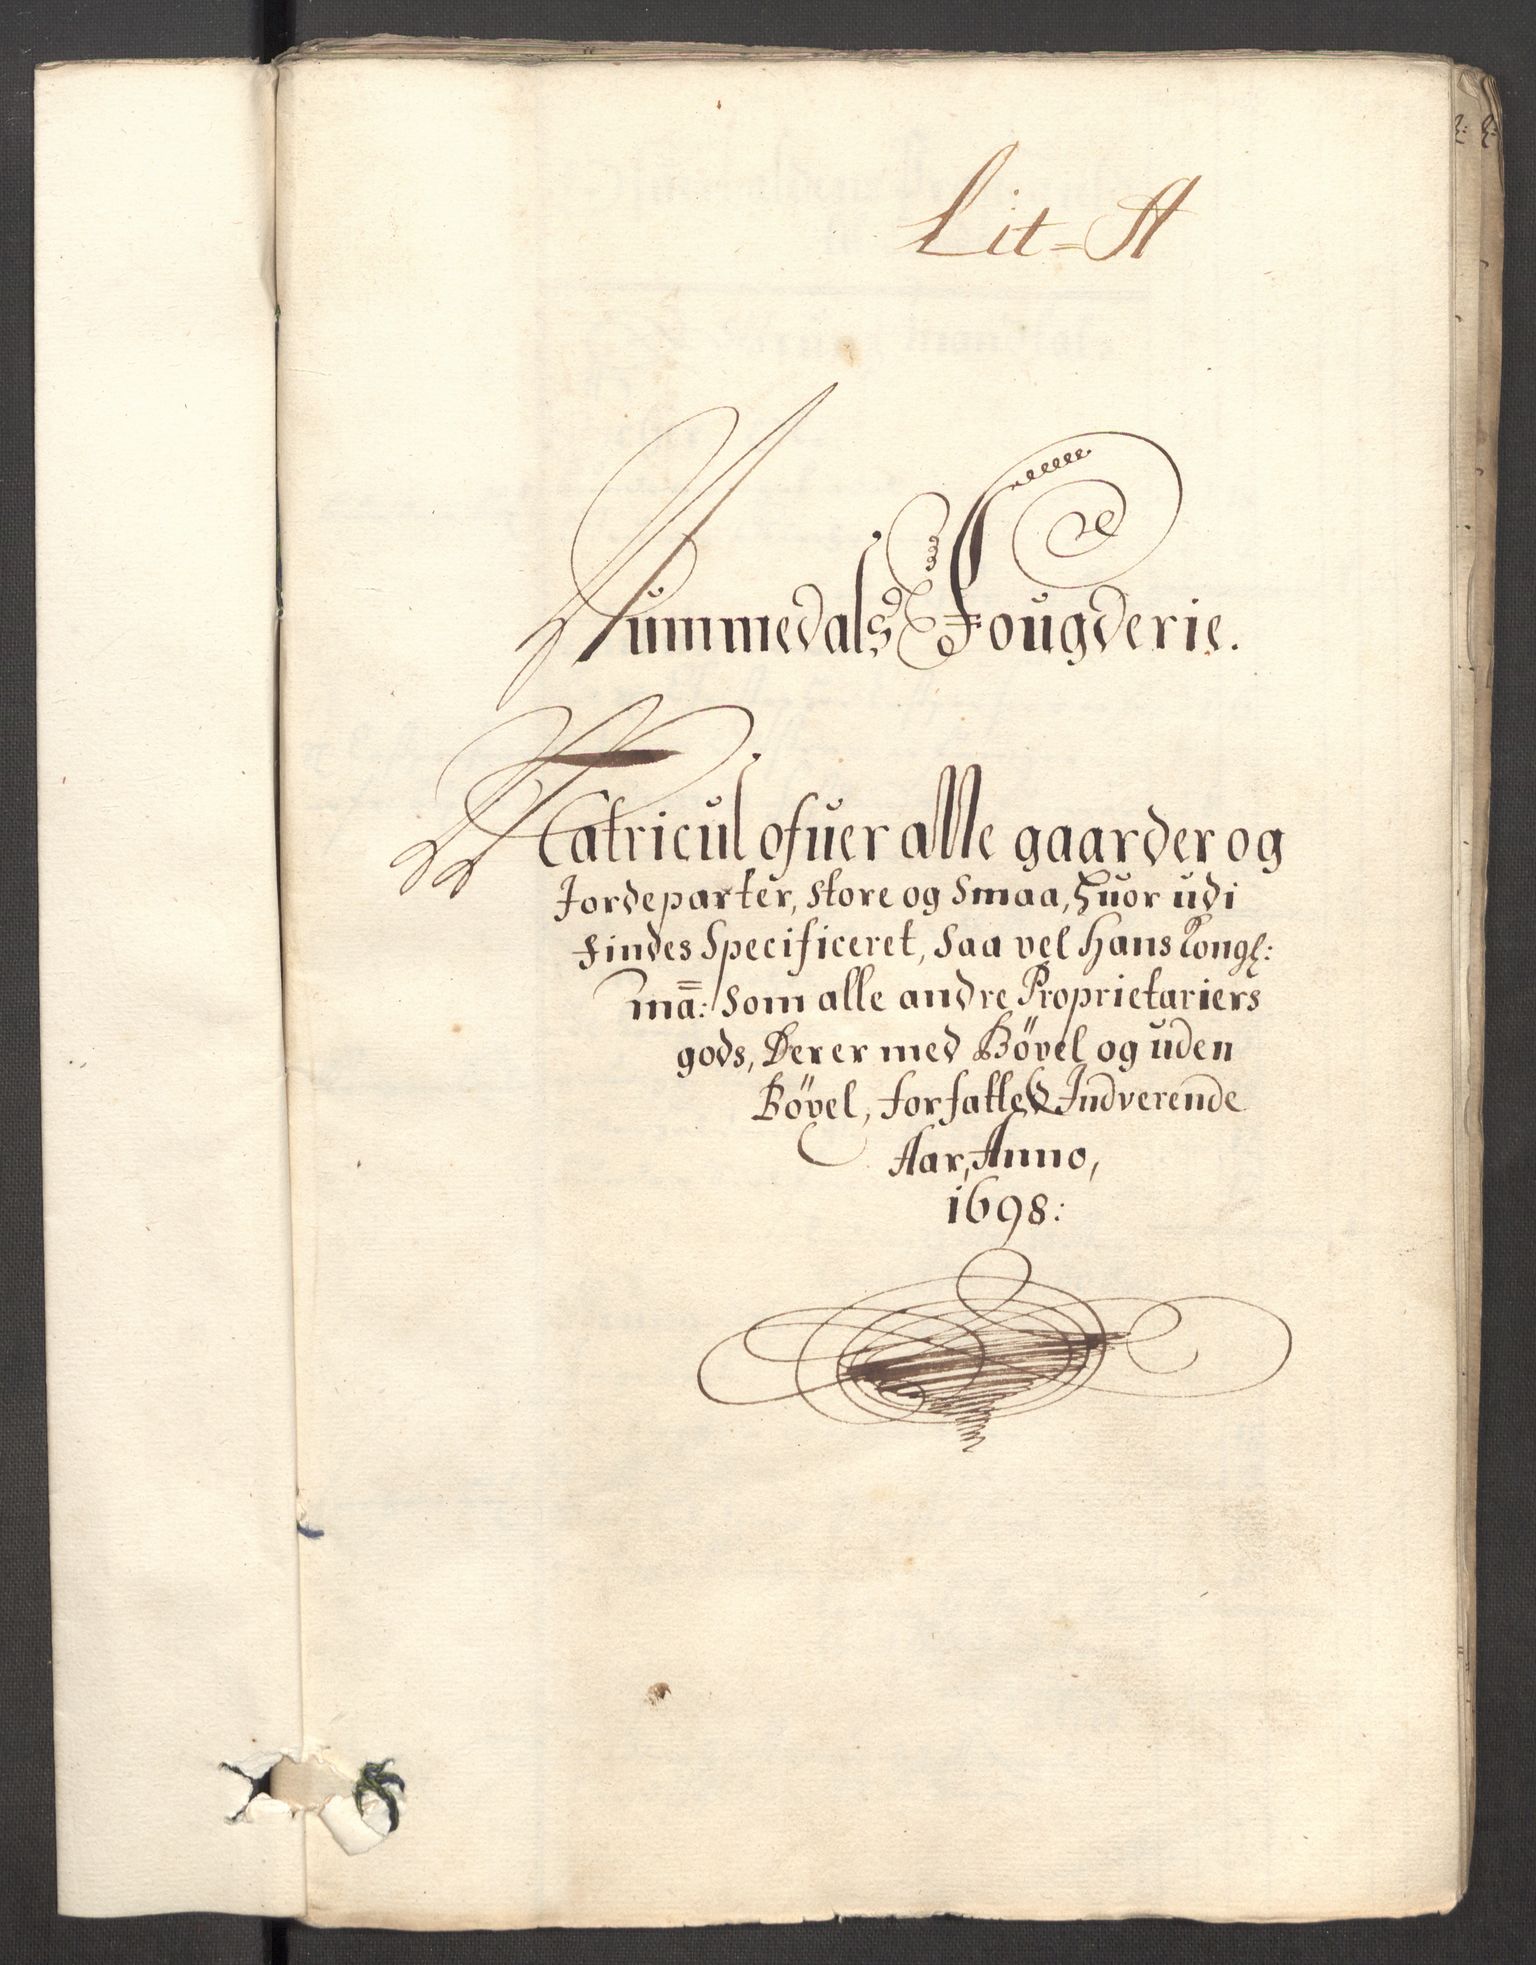 Lit=A
Nummedals Fougderie.
Matricul ofuer alle gaarder og
Jordeparter, store og Smaa, Huor udi
findes Specificeret, Saa vel Hans Kongl:
ma: Som alle andre Proprietariers
gods, Derer med Böxel og uden
Böxel, forfattet Indverende
Aar, Anno,
1698: